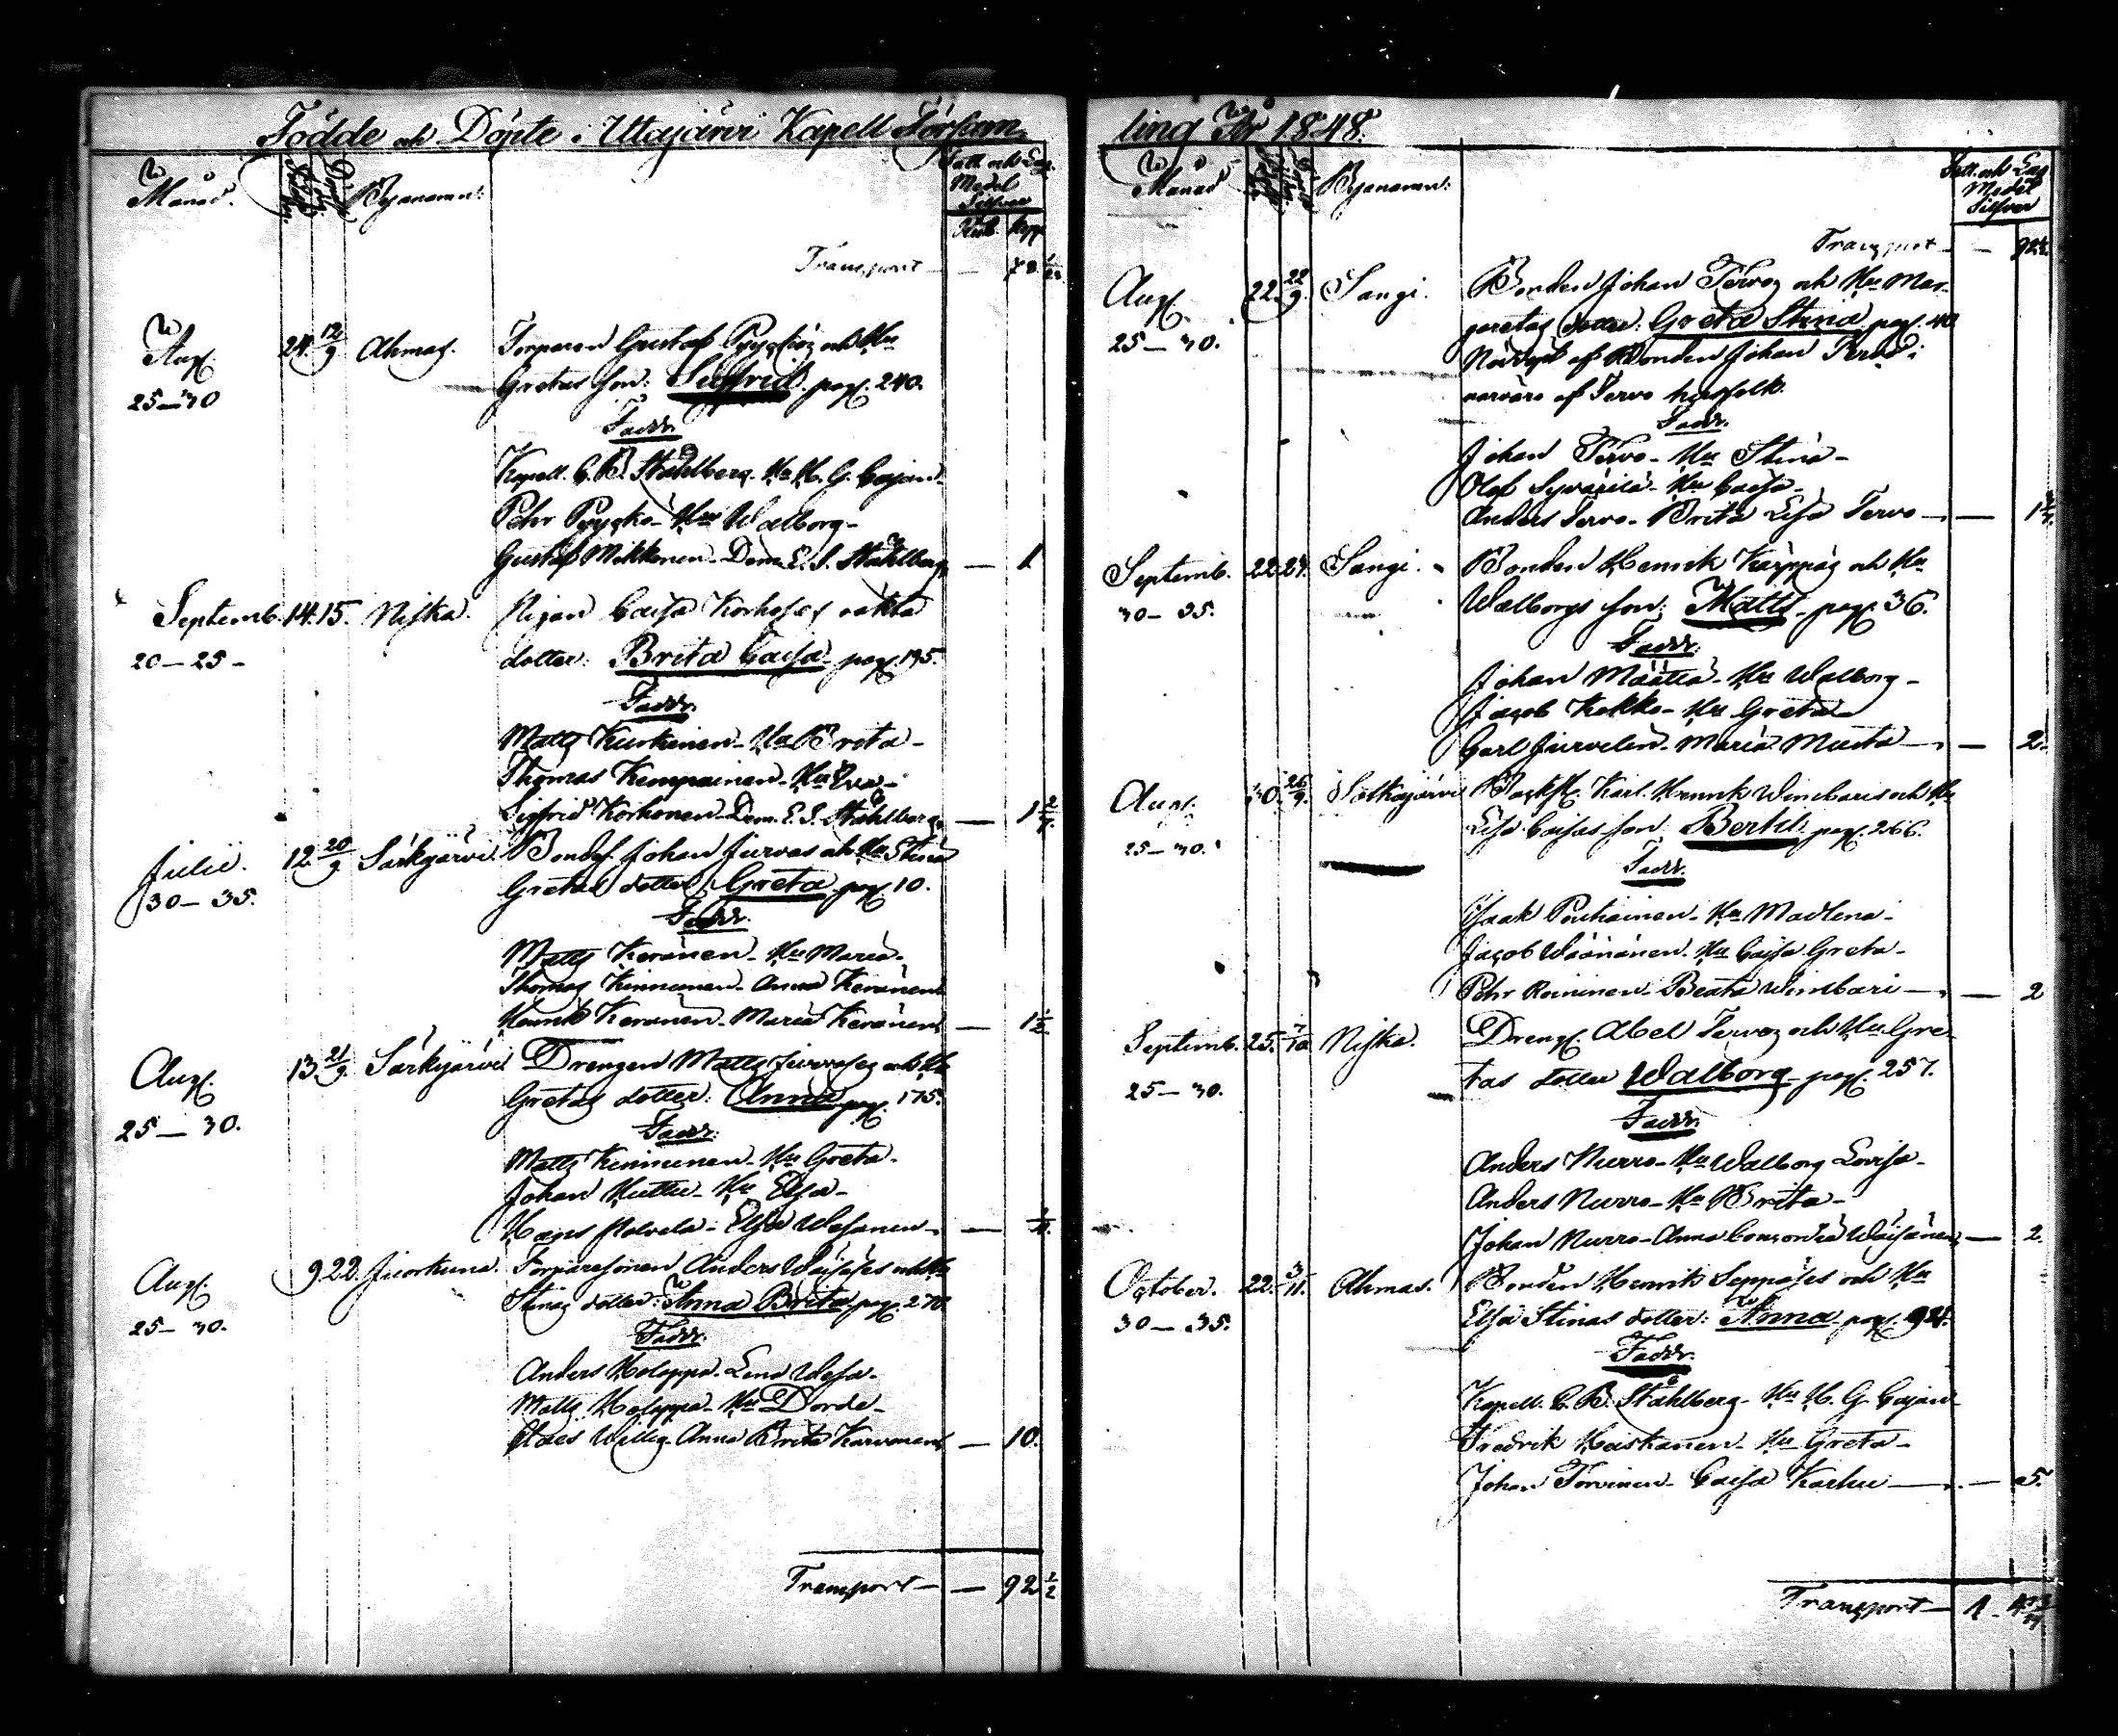 Födde och Döpte i Uttajärvi Kapell Försam-
Månad.
Byanamn:
Fatt. och Lag.
Medel
Silfver
Rub. kop.
Transport —
Aug.
24. 12/9 Ahmas.
Torparen Gustaf Pyykös och Hu
25—30
Gretas son: Sigfrid pag. 240.
Faddr.
Kapell. C. R. Ståhlberg. Hu H. G. Cajan-
Pehr Pyykö- Hu Walborg-
Gustaf Mikkonen- Dem. E. S. Ståhlberg — 1
Septemb. 14. 15. Niska.
Pigan Caisa Korhoses oäkta
20—25—
dotter: Brita Caisa pag. 195.
Faddr.
Matts Kurkinen- Hu Brita-
Thomas Kemppainen- Hu Eva-
Sigfrid Korhonen- Dem. E. S. Ståhlberg —
Julii. 12. 20/9 Särkijärvi.
Bonden Johan Jurvas och Hu Stina
30—35.
Gretas dotter Greta pag. 10.
Faddr.
Matts Keränen- Hu Maria-
Thomas Kinnunen- Anna Keränen
Henrik Keränen- Maria Keränen — 1 1/2
Aug. 13. 21/9. Särkijärvi
Drengen Matts Jurvas och Hu
25—30.
Gretas dotter: Anna pag. 175.
Faddr.
Matts Kinnunen- Hu Greta-
Johan Huttu- Hu Elsa-
Hans Polvela- Elsa Wesanen —
Aug. 9. 22. Juorkuna.
Torparesonen Anders Wäisäses och Hu
25—30.
Stinas dotter: Anna Brita pag. 270.
Faddr.
Anders Holappa- Lena Wesa-
Matts Holappa- Hu Dorde-
Claes Willig- Anna Brita Karvonen — 10.
Transport — — 92 1/2
ling År 1848.
Månad
Byanamn:
Fatt. och Lag
Medel
Silfver
Transport — — 92 1/2
Aug. 22. 22/9. Sangi.
Bonden Johan Tervos och Hu Mar-
25—30.
garetas dotter: Greta Stina pag. 40
Nöddöpt af Bonden Johan Tervo i
närvaro af Tervo husfolk.
Faddr.
Johan Tervo- Hu Stina-
Olof Syväjärvi- Hu Caisa-
Anders Tervo- Brita Lisa Tervo —
Septemb. 22. 24. Sangi.
Bonden Henrik Karppas och Hu
30—35.
Walborgs son: Matts pag. 36.
Faddr.
Johan Määttä- Hu Walborg-
Jacob Kokko- Hu Greta-
Carl Jurvelin- Maria Musta — — 2.
Aug. 30. 26/9.
Karl Henrik Wimbaris och Hu
25—30.
Lisa Caisas son Bertil pag. 266.
Faddr.
Isaak Poutiainen- Hu Madlena-
Jacob Wäänänen- Hu Caisa Greta-
Pehr Roininen- Beata Wimbari — — 2
Septemb. 25. 7/10 Niska.
Dreng. Abel Tervos och Hu Gre-
25—30.
tas dotter Walborg pag. 257.
Faddr.
Anders Nurro- Hu Walborg Lovisa-
Anders Nurro- Hu Brita-
Johan Nurro- Anna Concordia Wäisänen — 2.
October. 22. 3/11. Ahmas.
Bonden Henrik Seppäses och Hu
30—35.
Elsa Stinas dotter: Anna pag. 94.
Faddr.
Kapell. C. R. Ståhlberg- Hu H. G. Cajan-
Fredrik Heiskanen- Hu Greta-
Johan Torvinen- Caisa Karhu — — 5.
Transport — 1.